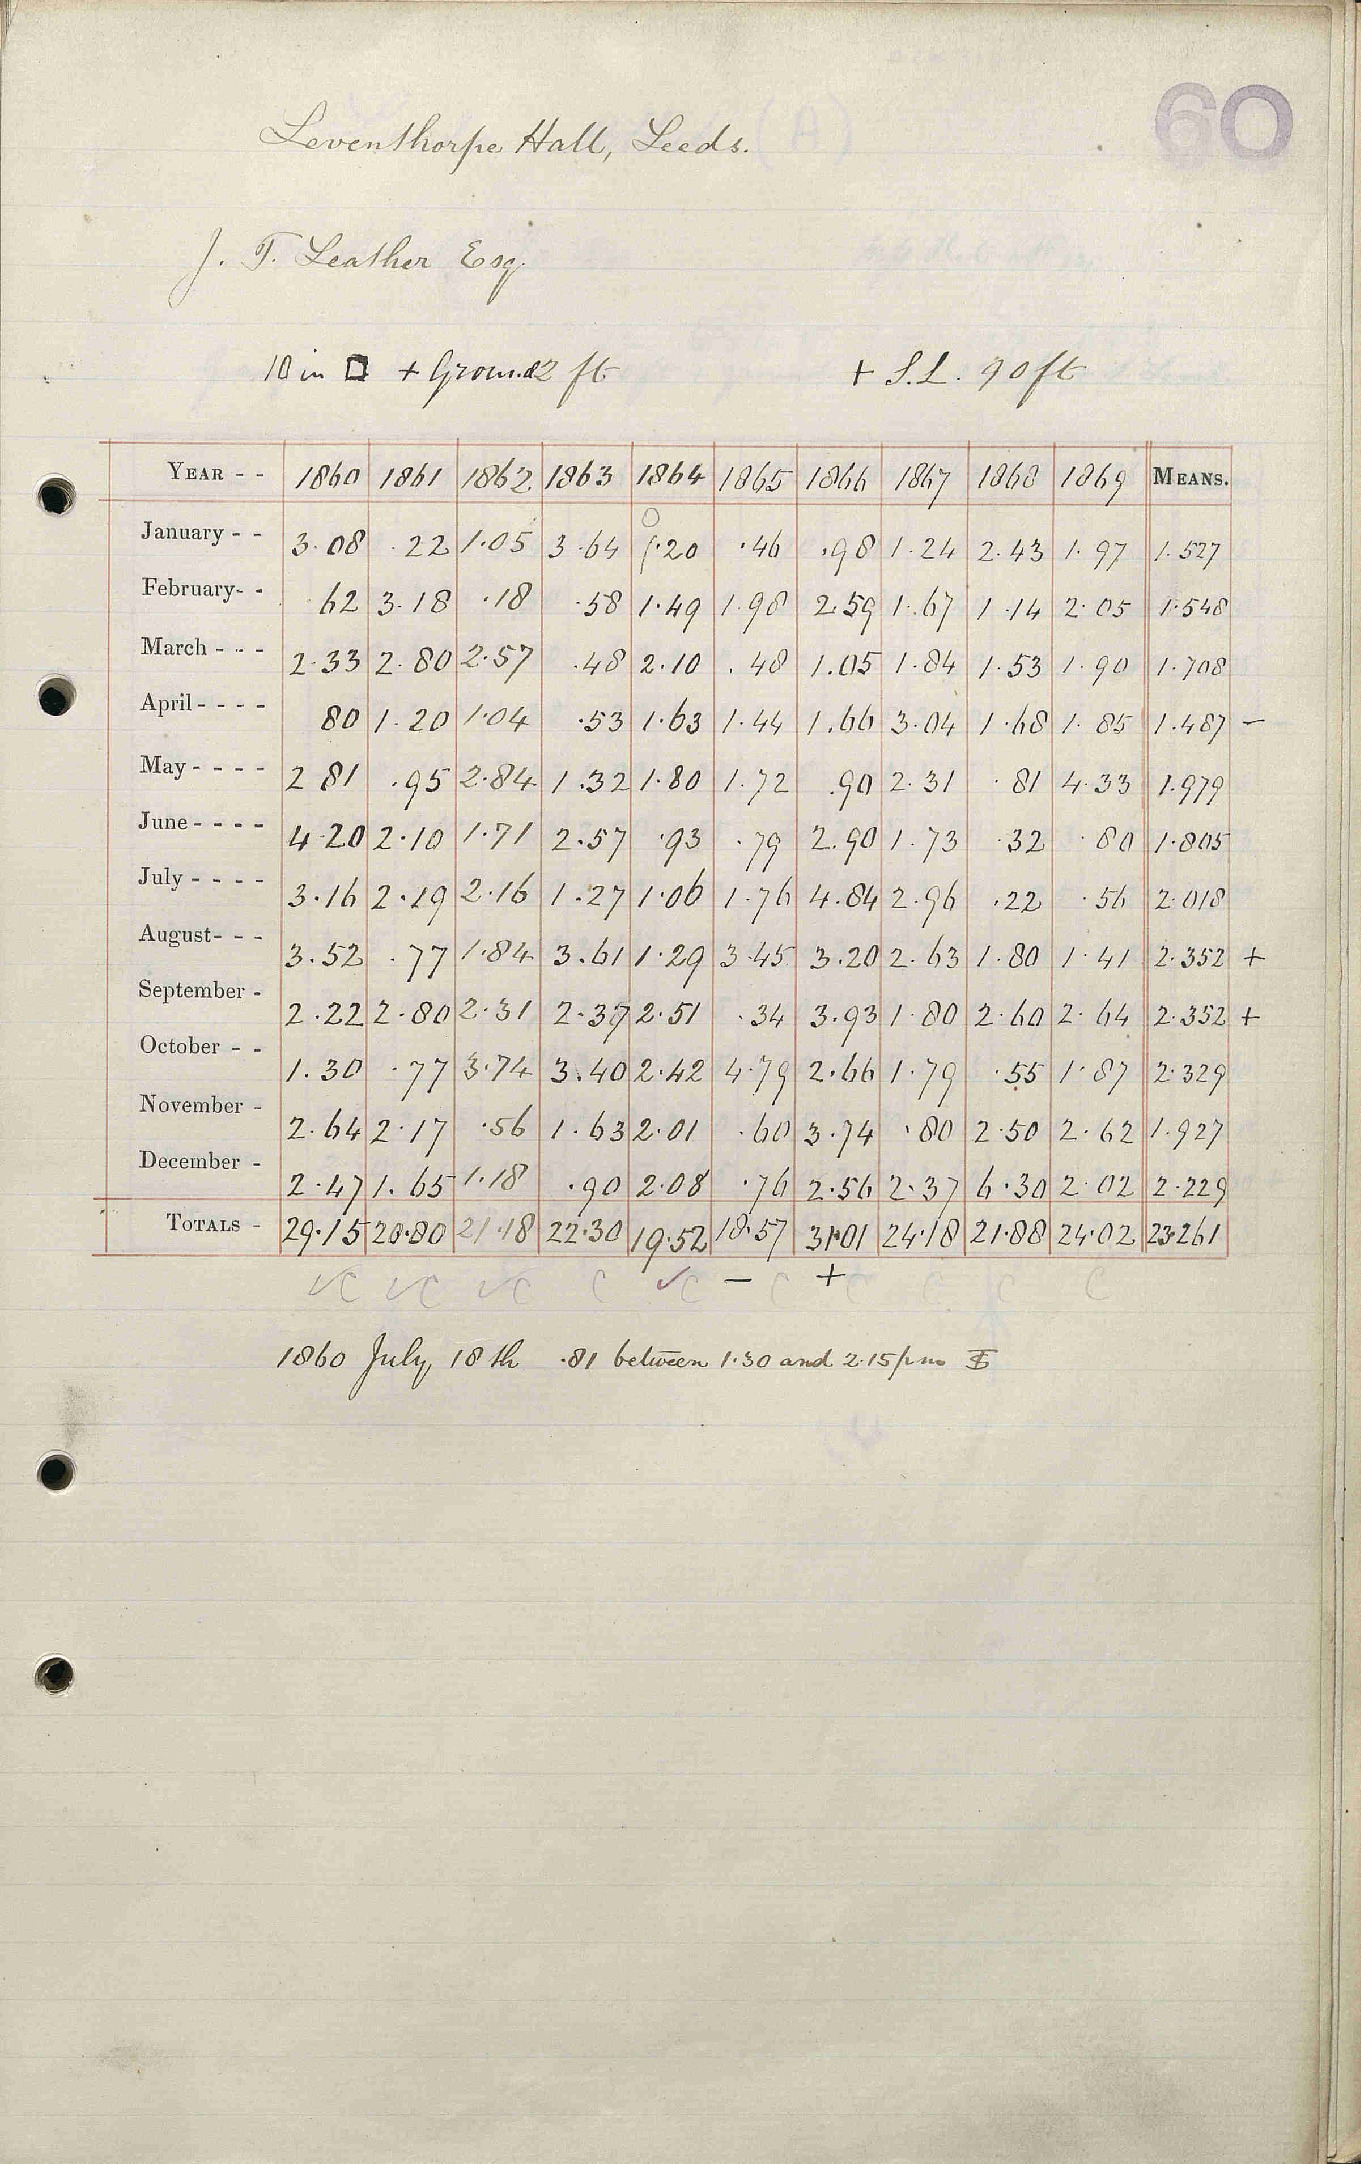 60
Leventhorpe Hall, Leeds.
J. T. Leather Esq.
10 in □ + Ground 2 ft + S.L. 90 ft
YEAR - - 1860 1861 1862 1863 1864 1865 1866 1867 1868 1869 MEANS.
January - - 3.08 .22 1.05 3.64 .20 .46 .98 1.24 2.43 1.97 1.527
February- - .62 3.18 .18 .58 1.49 1.98 2.59 1.67 1.14 2.05 1.548
March - - - 2.33 2.80 2.57 .48 2.10 .48 1.05 1.84 1.53 1.90 1.708
April - - - - 80 1.20 1.04 .53 1.63 1.44 1.66 3.04 1.68 1.85 1.487 −
May - - - - 2 81 .95 2.84 1.32 1.80 1.72 .90 2.31 .81 4.33 1.979
June - - - - 4.20 2.10 1.71 2.57 .93 .79 2.90 1.73 .32 .80 1.805
July - - - - 3.16 2.19 2.16 1.27 1.06 1.76 4.84 2.96 .22 .56 2.018
August- - - 3.52 .77 1.84 3.61 1.29 3.45 3.20 2.63 1.80 1.41 2.352 +
September - 2.22 2.80 2.31 2.37 2.51 .34 3.93 1.80 2.60 2.64 2.352 +
October - - 1.30 .77 3.74 3.40 2.42 4.79 2.66 1.79 .55 1.87 2.329
November - 2.64 2.17 .56 1.63 2.01 .60 3.74 .80 2.50 2.62 1.927
December - 2.47 1.65 1.18 .90 2.08 .76 2.56 2.37 6.30 2.02 2.229
TOTALS - 29.15 20.80 21.18 22.30 19.52 18.57 31.01 24.18 21.88 24.02 23.261
✓C ✓C ✓C C ✓C − C + C C C C
1860 July 18th .81 between 1.30 and 2.15 pm